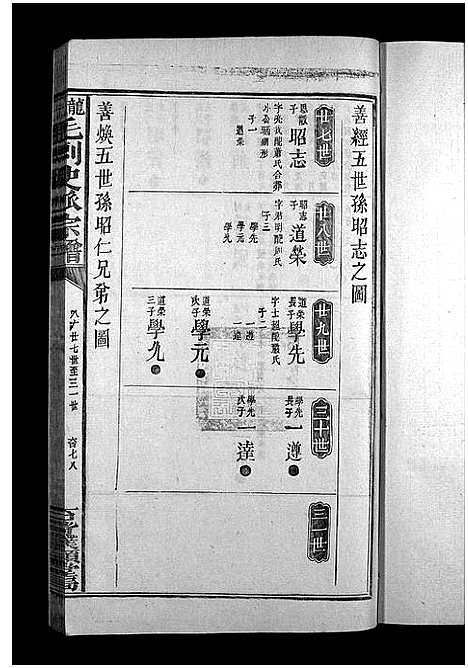 善經五世孫昭志之圖
廿七世
思敬子
昭志
字亮我配蕭氏合葬
子一
道榮
廿八世
昭志子
道榮
字君明配劉氏
子三
學先
學元
學九
廿九世
道榮長子
學先
字士超配嚴氏
子二
一遵
一達
道榮次子
學元
道榮三子
學九
三十世
學先長子
一遵
學先次子
一達
三一世
善煥五世孫昭仁兄弟之圖
龍
毛
史派宗譜
廿七世至三一世